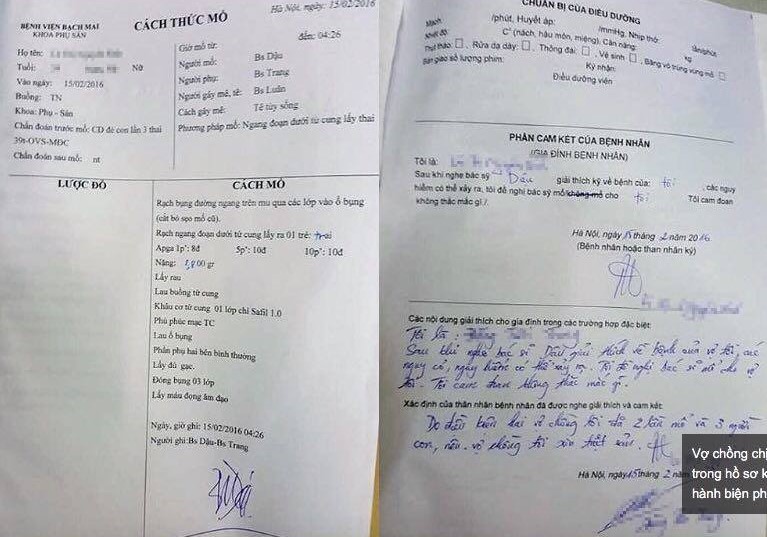 BỆNH VIỆN BẠCH MAI
KHOA PHỤ SẢN
CÁCH THỨC MỔ
Hà Nội, ngày: 15/02/2016
đến: 04:26
Họ tên:
Tuổi: Nữ
Vào ngày: 15/02/2016
Buồng: TN
Khoa: Phụ - Sản
Chẩn đoán trước mổ: CD đẻ con lần 3 thai
39t-OVS-MĐC
Chẩn đoán sau mổ: nt
Giờ mổ từ:
Người mổ: Bs Dậu
Người phụ: Bs Trang
Người gây mê, tê: Bs Luân
Cách gây mê: Tê tủy sống
Phương pháp mổ: Ngang đoạn dưới tử cung lấy thai
LƯỢC ĐỒ
CÁCH MỔ
Rạch bụng đường ngang trên mu qua các lớp vào ổ bụng
(cắt bỏ sẹo mổ cũ).
Rạch ngang đoạn dưới tử cung lấy ra 01 trẻ: trai
Apga 1p': 8đ 5p': 10đ 10p': 10đ
Nặng: 800 gr
Lấy rau
Lau buồng tử cung
Khâu cơ tử cung 01 lớp chỉ Safil 1.0
Phủ phúc mạc TC
Lau ổ bụng
Phần phụ hai bên bình thường
Lấy đủ gạc.
Đóng bụng 03 lớp
Lấy máu đọng âm đạo
Ngày, giờ ghi: 15/02/2016 04:26
Người ghi:Bs Dậu-Bs Trang
CHUẨN BỊ CỦA ĐIỀU DƯỠNG
Mạch /phút, Huyết áp: /mmHg, Nhịp thở: lần/phút
Nhiệt độ: C° (nách, hậu môn, miệng), Cân nặng: kg
Thụt tháo: □, Rửa dạ dày: □, Thông đái: □, Vệ sinh □, Băng vô trùng vùng mổ □
Bàn giao số lượng phim: Ký nhận:
Điều dưỡng viên
PHẦN CAM KẾT CỦA BỆNH NHÂN
(GIA ĐÌNH BỆNH NHÂN)
Tôi là:
Sau khi nghe bác sỹ Dậu giải thích kỹ về bệnh của: tôi, các nguy
hiểm có thể xảy ra, tôi đề nghị bác sỹ mổ/không mổ cho tôi Tôi cam đoan
không thắc mắc gì./.
Hà Nội, ngày 15 tháng 2 năm 2016
(Bệnh nhân hoặc than nhân ký)
Các nội dung giải thích cho gia đình trong các trường hợp đặc biệt:
Tôi là:
Sau khi nghe bác sĩ Dậu giải thích về bệnh của vợ tôi, các
nguy cơ, nguy hiểm có thể xảy ra. Tôi đề nghị bác sĩ mổ cho vợ
tôi. Tôi cam đoan không thắc mắc gì.
Xác định của thân nhân bệnh nhân đã được nghe giải thích và cam kết:
Do điều kiện hai vợ chồng tôi đã 2 lần mổ và 3 người
con, nên vợ chồng tôi xin triệt sản.
Hà Nội, ngày 15 tháng 2 năm
Vợ chồng chị
trong hồ sơ k
hành biện ph